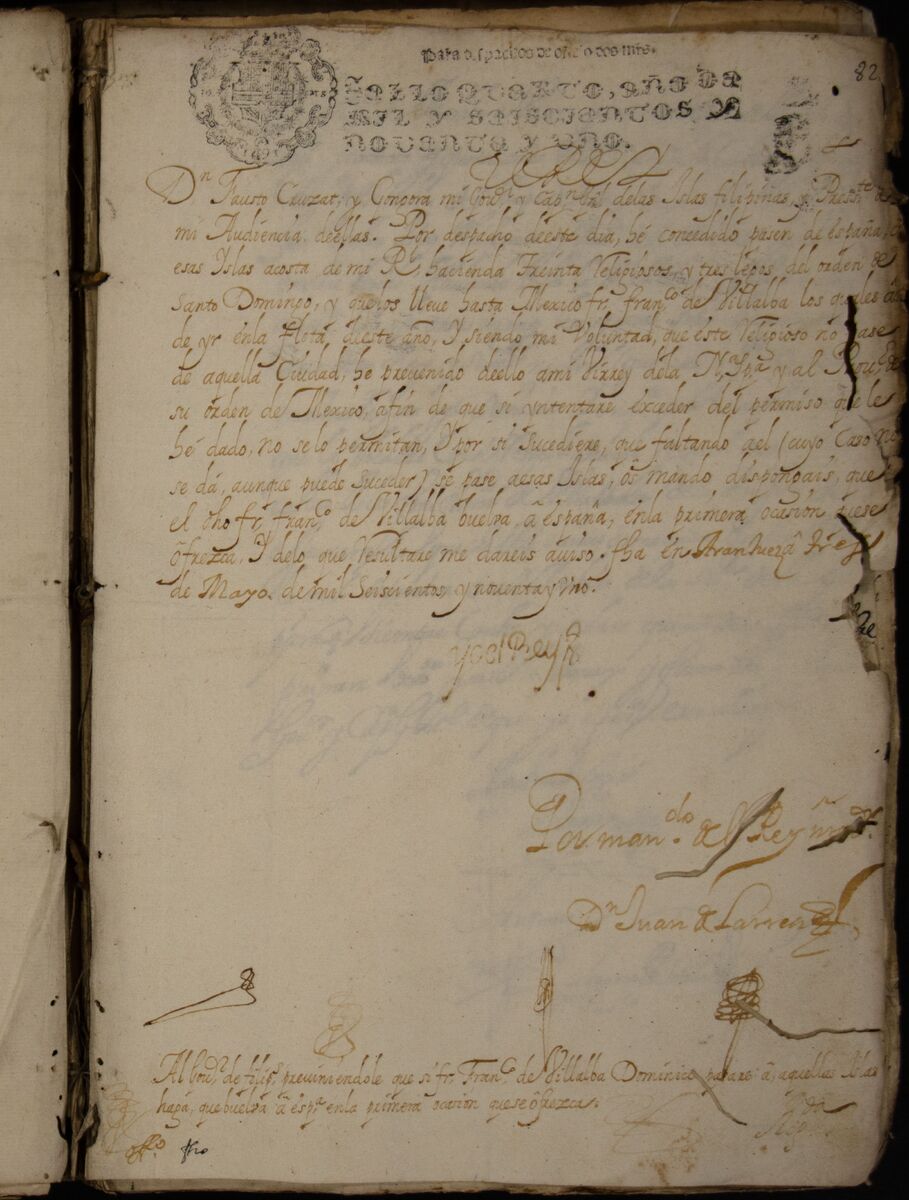 Para despachos de oficio dos mrs.
82
SELLO QVARTO, AÑO DE
MIL Y SEISCIENTOS Y
NOVENTA Y VNO.
Dn Fausto Cruzat, y Gongora mi Govor. y Capn. Gnl delas Islas filipinas, y Presite. de
mi Audiencia deellas. Por despacho deeste dia, hé concedido pasen de españa, a
esas Islas acosta de mi Rl. hacienda Treinta Religiosos, y tres legos del orden de
Santo Domingo, y quelos lleve hasta Mexico fr. franco. de Villalba los quales an
de yr enla flota, deeste año, Y siendo mi Voluntad, que este Religioso no pase
de aquella Ciudad, he prevenido deello ami Virrey dela Na. Spa. y al Provl. de
su orden de Mexico, afin de que si yntentare exceder del permiso que le
hé dado, no selo permitan, Y por si sucediere, que faltando aél (cuyo caso no
se dá, aunque puede suceder) se pase aesas Islas, os mando dispongais, que
el dho fr. franco. de Villalba buelva, a españa, enla primera ocasion quese
ofrezca, Y delo que resultare me dareis aviso. fha en Aranjuez a treze
de Mayo de mil Seiscientos y noventa y vno.
yo el Rey
Por mando. del Rey nro. sr.
Dn Juan de Larrea
Al Govor. de filips. previniendole que si fr. Franco. de Villalba Dominico pasare a, aquellas Islas
haga, que buelva a espa. enla primera ocasion quese ofrezca.
offo
fho